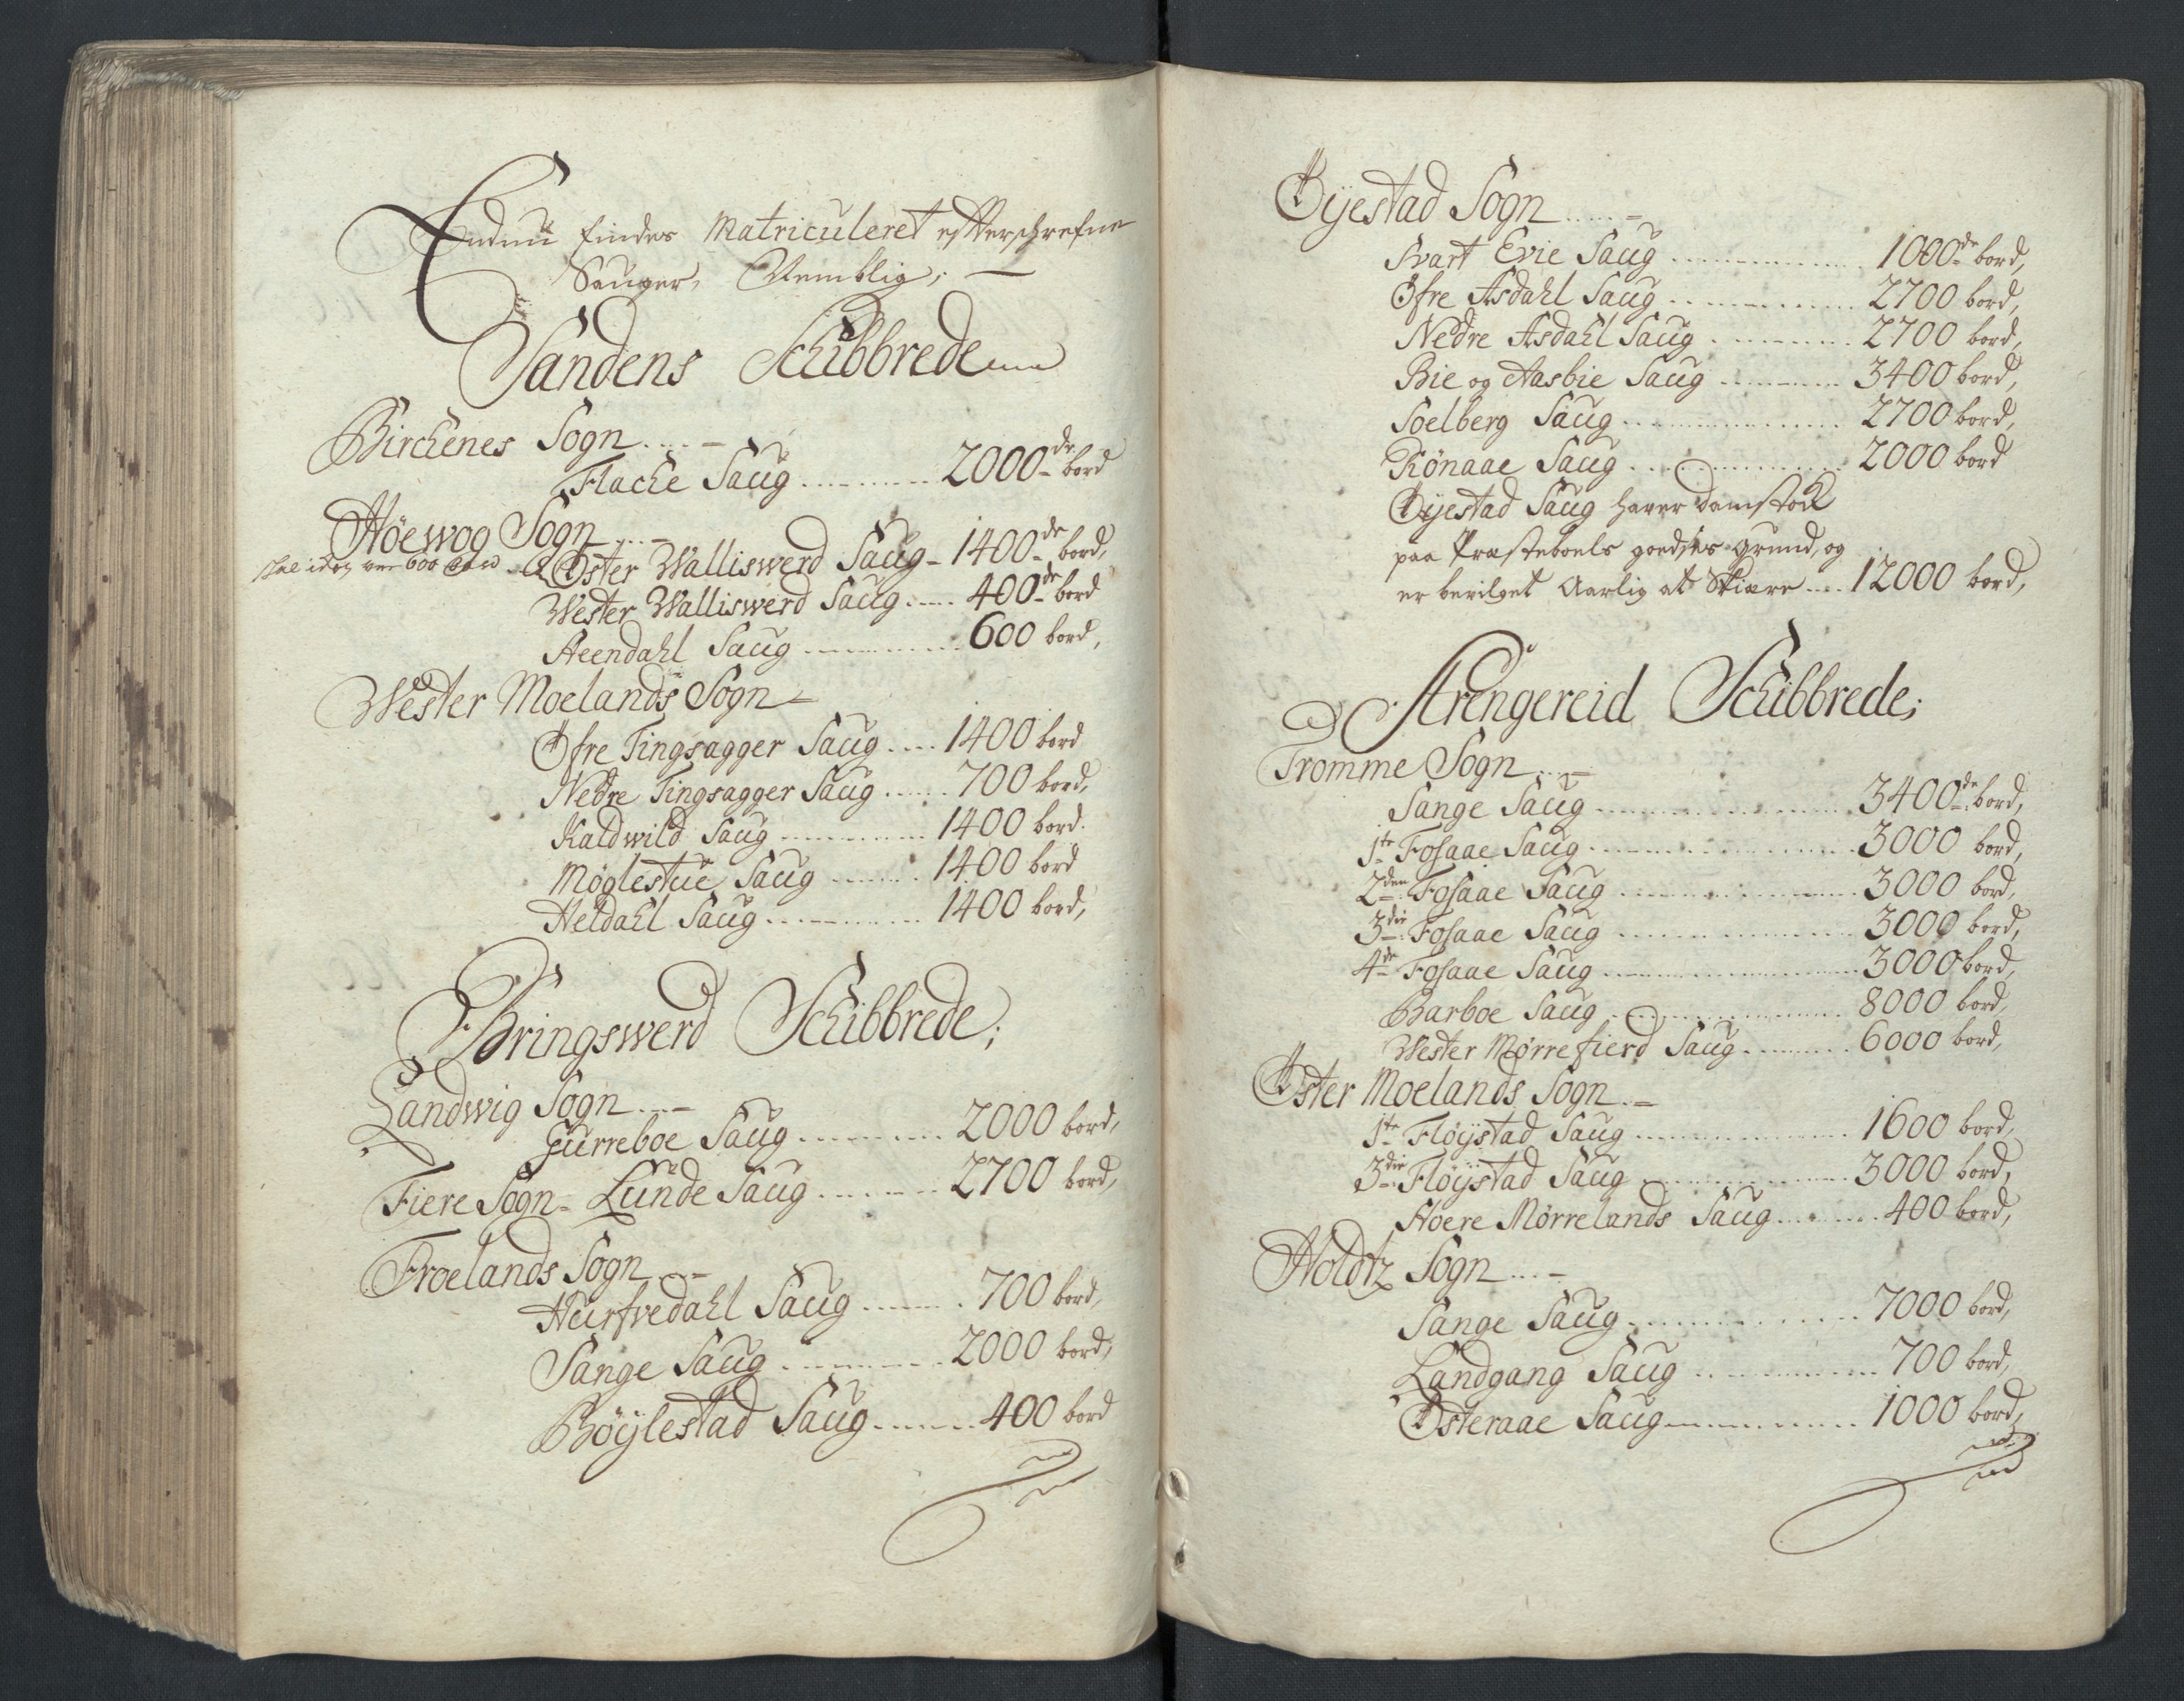 Endnu findes Matriculeret effterschrefne
Sauger, Nemblig; —
Sandens Schibbrede
Birchenes Sogn ....–
Flache Saug ......... 2000de bord
Høewog Sogn ....–
600
Øster Walliswerd Saug – 1400de bord,
Wester Walliswerd Saug .... 400de bord
Aeendahl Saug ......... 600 bord,
Wester Moelands Sogn –
Øfre Tingsagger Saug .... 1400 bord
Nedre Tingsagger Saug ..... 700 bord,
Kaldwild Saug ......... 1400 bord.
Møglestue Saug ....... 1400 bord
Heldahl Saug ......... 1400 bord,
Bringswerd Schibbrede;
Landwig Sogn ...–
Gurreboe Saug ........ 2000 bord,
Fiere Sogn – Lunde Saug ....... 2700 bord,
Froelands Sogn ...–
Hurfvedahl Saug ....... 700 bord,
Sange Saug ......... 2000 bord,
Bøylestad Saug ...... 400 bord
Øyestad Sogn .....–
Svart Evie Saug ............ 1000de bord,
Øfre Asdahl Saug ............ 2700 bord,
Nedre Asdahl Saug ......... 2700 bord,
Bie og Aasbie Saug ........ 3400 bord,
Soelberg Saug ............ 2700 bord,
Rønaae Saug ............ 2000 bord
Øyestad Saug haver damstok
paa Præsteboels goedses grund, og
er bevilget Aarlig at Skiære .... 12000 bord,
Strengereid Schibbrede;
Tromme Sogn ...–
Sange Saug ............ 3400de bord,
1te Fosaae Saug ............ 3000 bord,
2den Fosaae Saug ............ 3000 bord,
3die Fosaae Saug ............ 3000 bord,
4de Fosaae Saug ............ 3000 bord,
Barboe Saug ............ 8000 bord,
Wester Mørrefierd Saug ....... 6000 bord,
Øster Moelands Sogn .–
1te Fløystad Saug ............ 1600 bord,
3die Fløystad Saug ............ 3000 bord,
Hoere Mørrelands Saug ....... 400 bord,
Holdtz Sogn ....–
Sange Saug ............ 7000 bord,
Landgang Saug ............ 700 bord,
Østeraae Saug ............ 1000 bord,